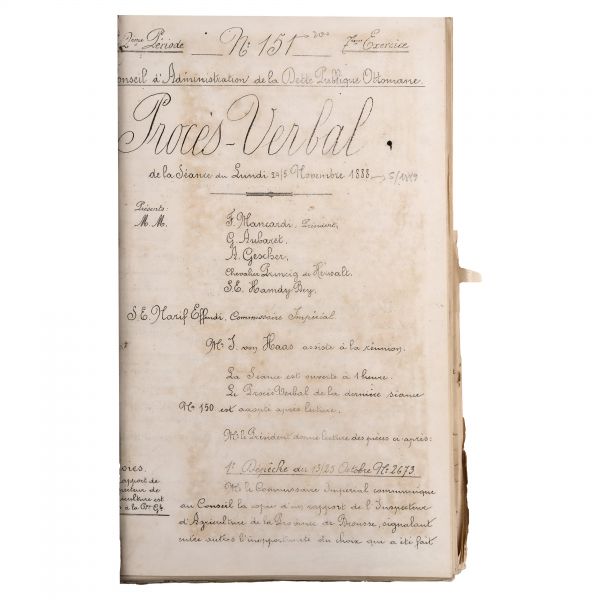 2ème Période Nº 151 7ème Exercice
Conseil d'Administration de la Dette Publique Ottomane.
Procès-Verbal.
de la Séance du Lundi 24/5 Novembre 1888
Présents:
M.M.
F. Mancardi, Président,
G. Aubaret,
A. Gescher,
Chevalier Princig de Herwalt,
S.E. Hamdy Bey,
S.E. Narif Effendi, Commissaire Impérial
Mr J. von Haas assiste à la réunion.
La Séance est ouverte à 1 heure.
Le Procès-Verbal de la dernière séance
Nº 150 est adopté après lecture.
Mr le Président donne lecture des pièces ci-après:
1º Dépêche du 13/25 Octobre Nº 2673
Mr le Commissaire Impérial communique
au Conseil la copie d'un rapport de l'Inspecteur
d'Agriculture de la Province de Brousse, signalant
entre autres l'inopportunité du choix qui a été fait
rapport de